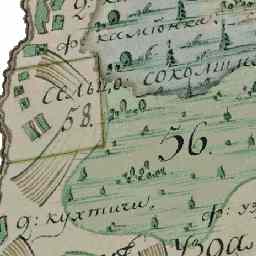 ф: каменка.
сельцо: соколищ
58.
56.
д: кухтичи.
ф: уз
Узда